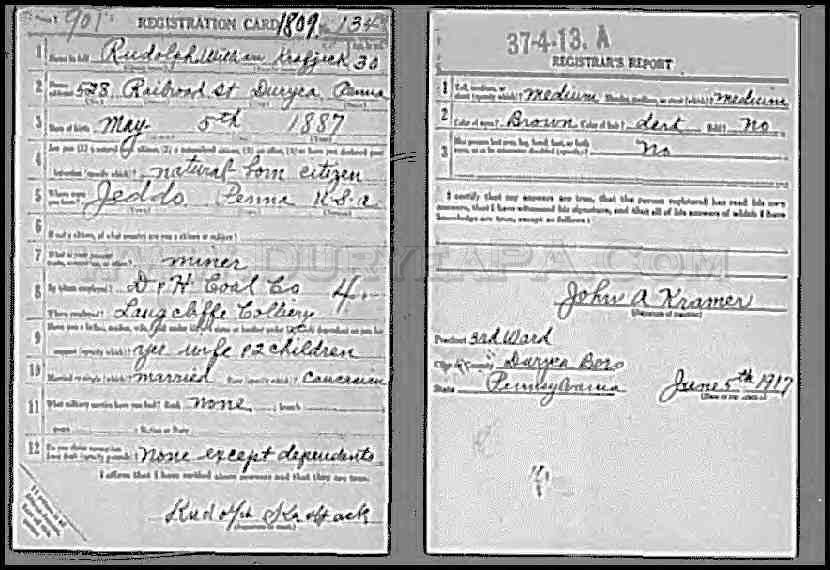 901 REGISTRATION CARD 1809 No. 134
1 Name in full Rudolph William 30
2 Home address 528 Railroad St Duryea Penna
3 Date of birth May 5th 1887
4 Are you (1) a natural born citizen, (2) a naturalized citizen, (3) an alien, (4) or have you declared your
intention (specify which)? natural born citizen
5 Where were you born? Jeddo Penna U.S.A
6 If not a citizen, of what country are you a citizen or subject?
7 What is your present trade, occupation, or office? miner
8 By whom employed? D & H Coal Co 4
Where employed? Langcliffe Colliery
9 Have you a father, mother, wife, child under 12, or a sister or brother under 12, solely dependent on you for
support (specify which)? yes wife & 2 children
10 Married or single (which)? married Race (specify which)? Caucasian
11 What military service have you had? Rank none ; branch
years ; Nation or State
12 Do you claim exemption from draft (specify grounds)? None except dependents
I affirm that I have verified above answers and that they are true.
Rudolph
(Signature or mark)
37-4-13. A
REGISTRAR'S REPORT
1 Tall, medium, or short (specify which)? Medium Slender, medium, or stout (which)? medium
2 Color of eyes? Brown Color of hair? dark Bald? No
3 Has person lost arm, leg, hand, foot, or both eyes, or is he otherwise disabled (specify)? No
I certify that my answers are true, that the person registered has read his own
answers, that I have witnessed his signature, and that all of his answers of which I have
knowledge are true, except as follows:
WWW.DURYEAPA.COM
John A Kramer
(Signature of registrar)
Precinct 3rd Ward
City or County Duryea Boro
State Pennsylvania June 5th 1917
(Date of registration)